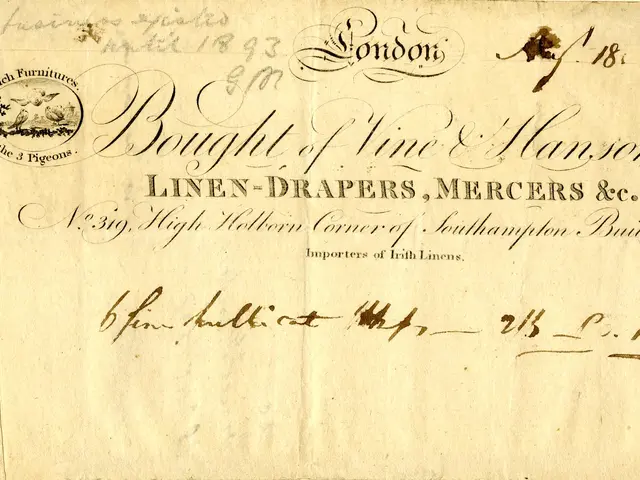 until 1893
GM
London
18
ch Furnitures.
he 3 Pigeons.
Bought of Vine & Hanson
LINEN-DRAPERS, MERCERS &c.
No. 319, High Holborn Corner of Southampton Buil
Importers of Irish Linens.
6 fine